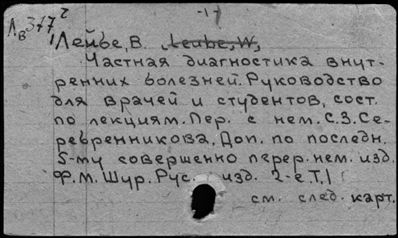 -17
Л.в 377²
Лейбе, В. Leube, W,
Частная диагностика внут-
ренних болезней. Руководство
для врачей и студентов, сост.
по лекциям. Пер. с нем. С.З. Се-
ребренникова. Доп. по последн.
5-му совершенно перер. нем. изд.
Ф.М. Шур. Рус. изд. 2-е Т.1
см. след. карт.